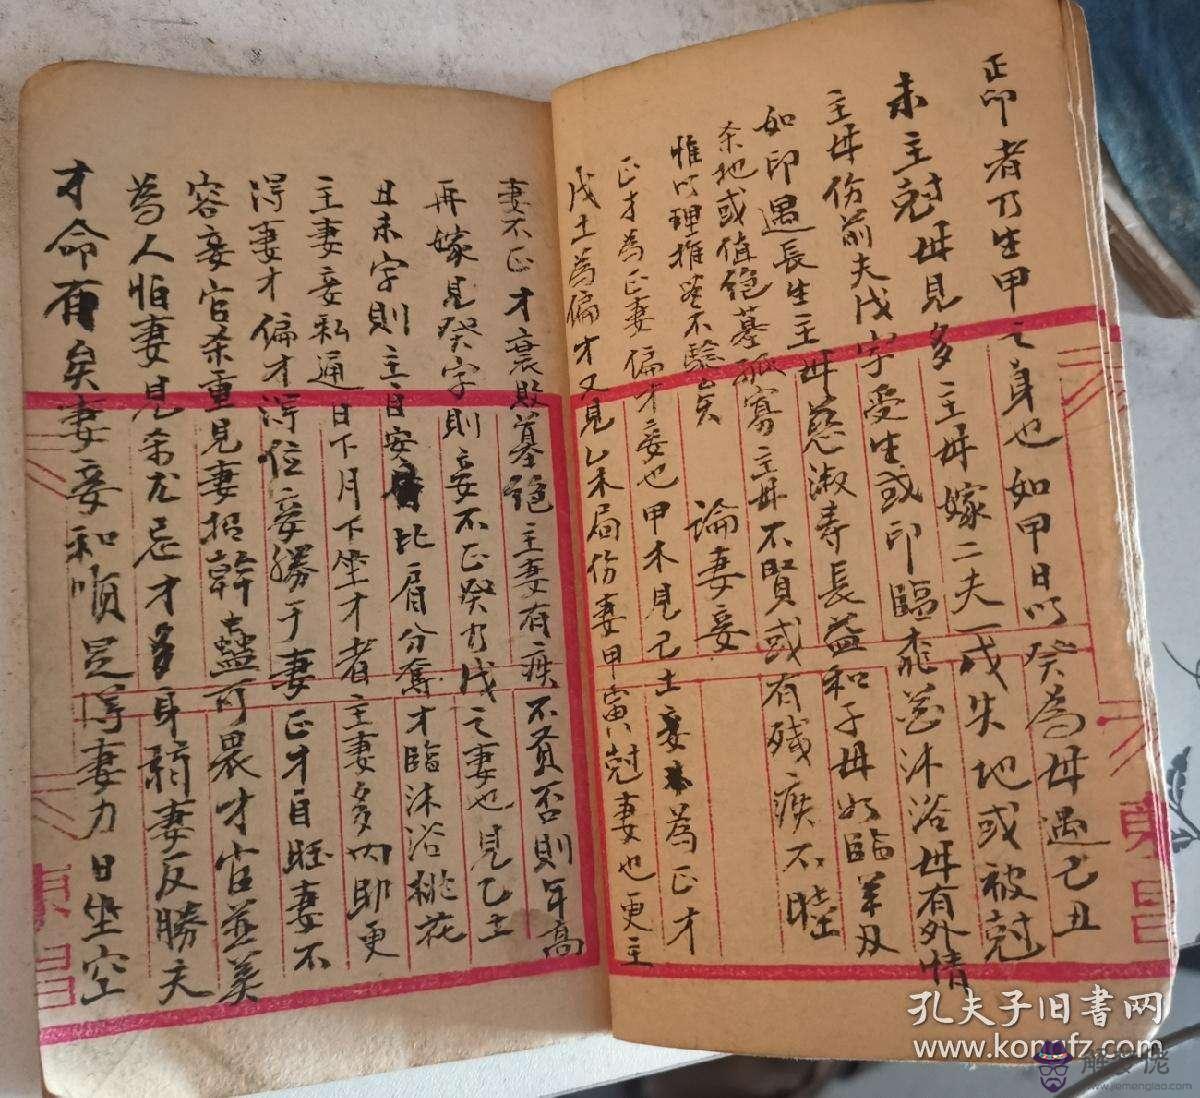 正印者乃生甲之身也如甲日以癸為母遇己丑
未主尅母見多主母嫁二夫一或失地或被尅
主母伤前夫戊字受生或印臨飛芒沐浴母有外情
如印遇長生主母慈淑寿長益和子母如臨羊刄
杀地或值绝墓孤寡主母不賢或有殘疾不睦
惟以理推塋不驗矣
論妻妾
正才為正妻偏才妾也甲木見己土妻為正才
戊土為偏才又見乙未局伤妻甲寅尅妻也更主
妻不正才衰敗墓绝主妻有疾不貧否則年高
再嫁見癸字則妾不正癸乃戊之妻也見乙土
丑未字則主目安比肩分奪才臨沐浴桃花
主妻妾私通日下月下坐才者主妻多内助更
淂妻才偏才淂位妾勝于妻正才自旺妻不
容妾官杀重見妻招幹蠱可畏才官並美
為人怕妻見杀尤忌才多身弱妻反勝夫
才命有矣妻妾和順足淂妻力日坐空
東昌
東昌
孔夫子旧书网
www.kongfz.com
解夢佬
www.jiemenglao.com